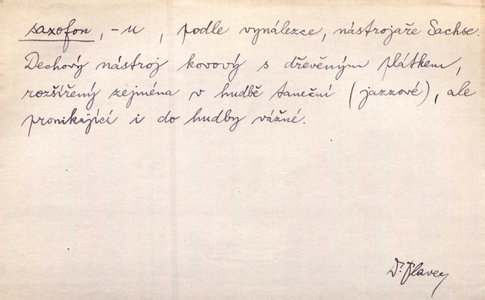 saxofon, -u, podle vynálezce, nástrojaře Sachse.
Dechový nástroj kovový s dřevěným plátkem,
rozšířený zejména v hudbě taneční (jazzové), ale
pronikající i do hudby vážné.
Dr. Plavec